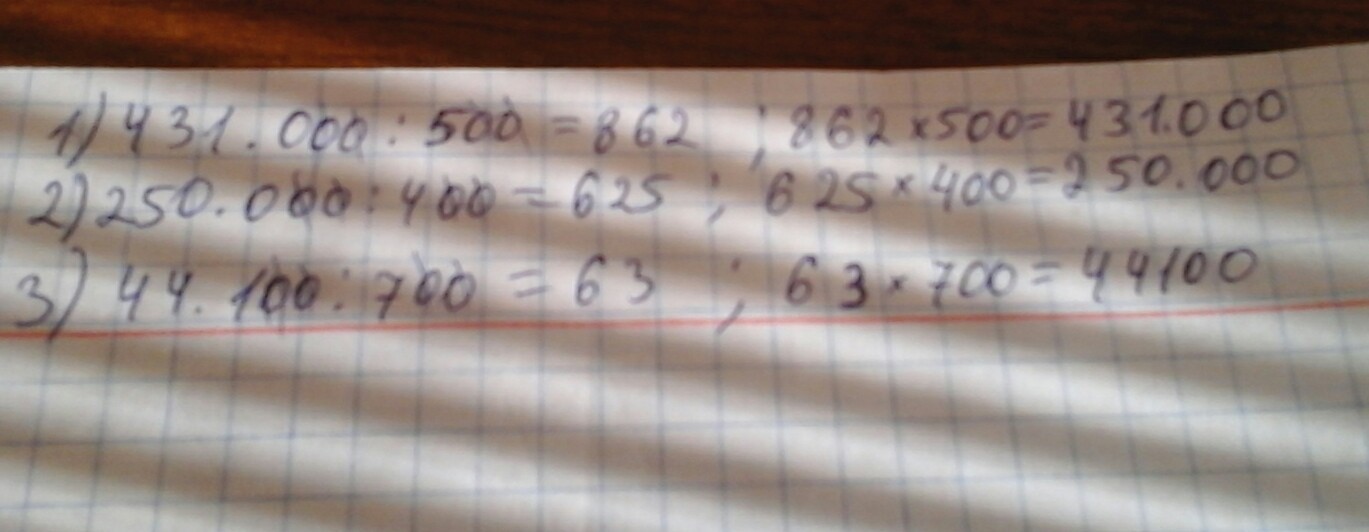 1) 431.000 : 500 = 862 ; 862 × 500 = 431.000
2) 250.000 : 400 = 625 ; 625 × 400 = 250.000
3) 44.100 : 700 = 63 ; 63 × 700 = 44100